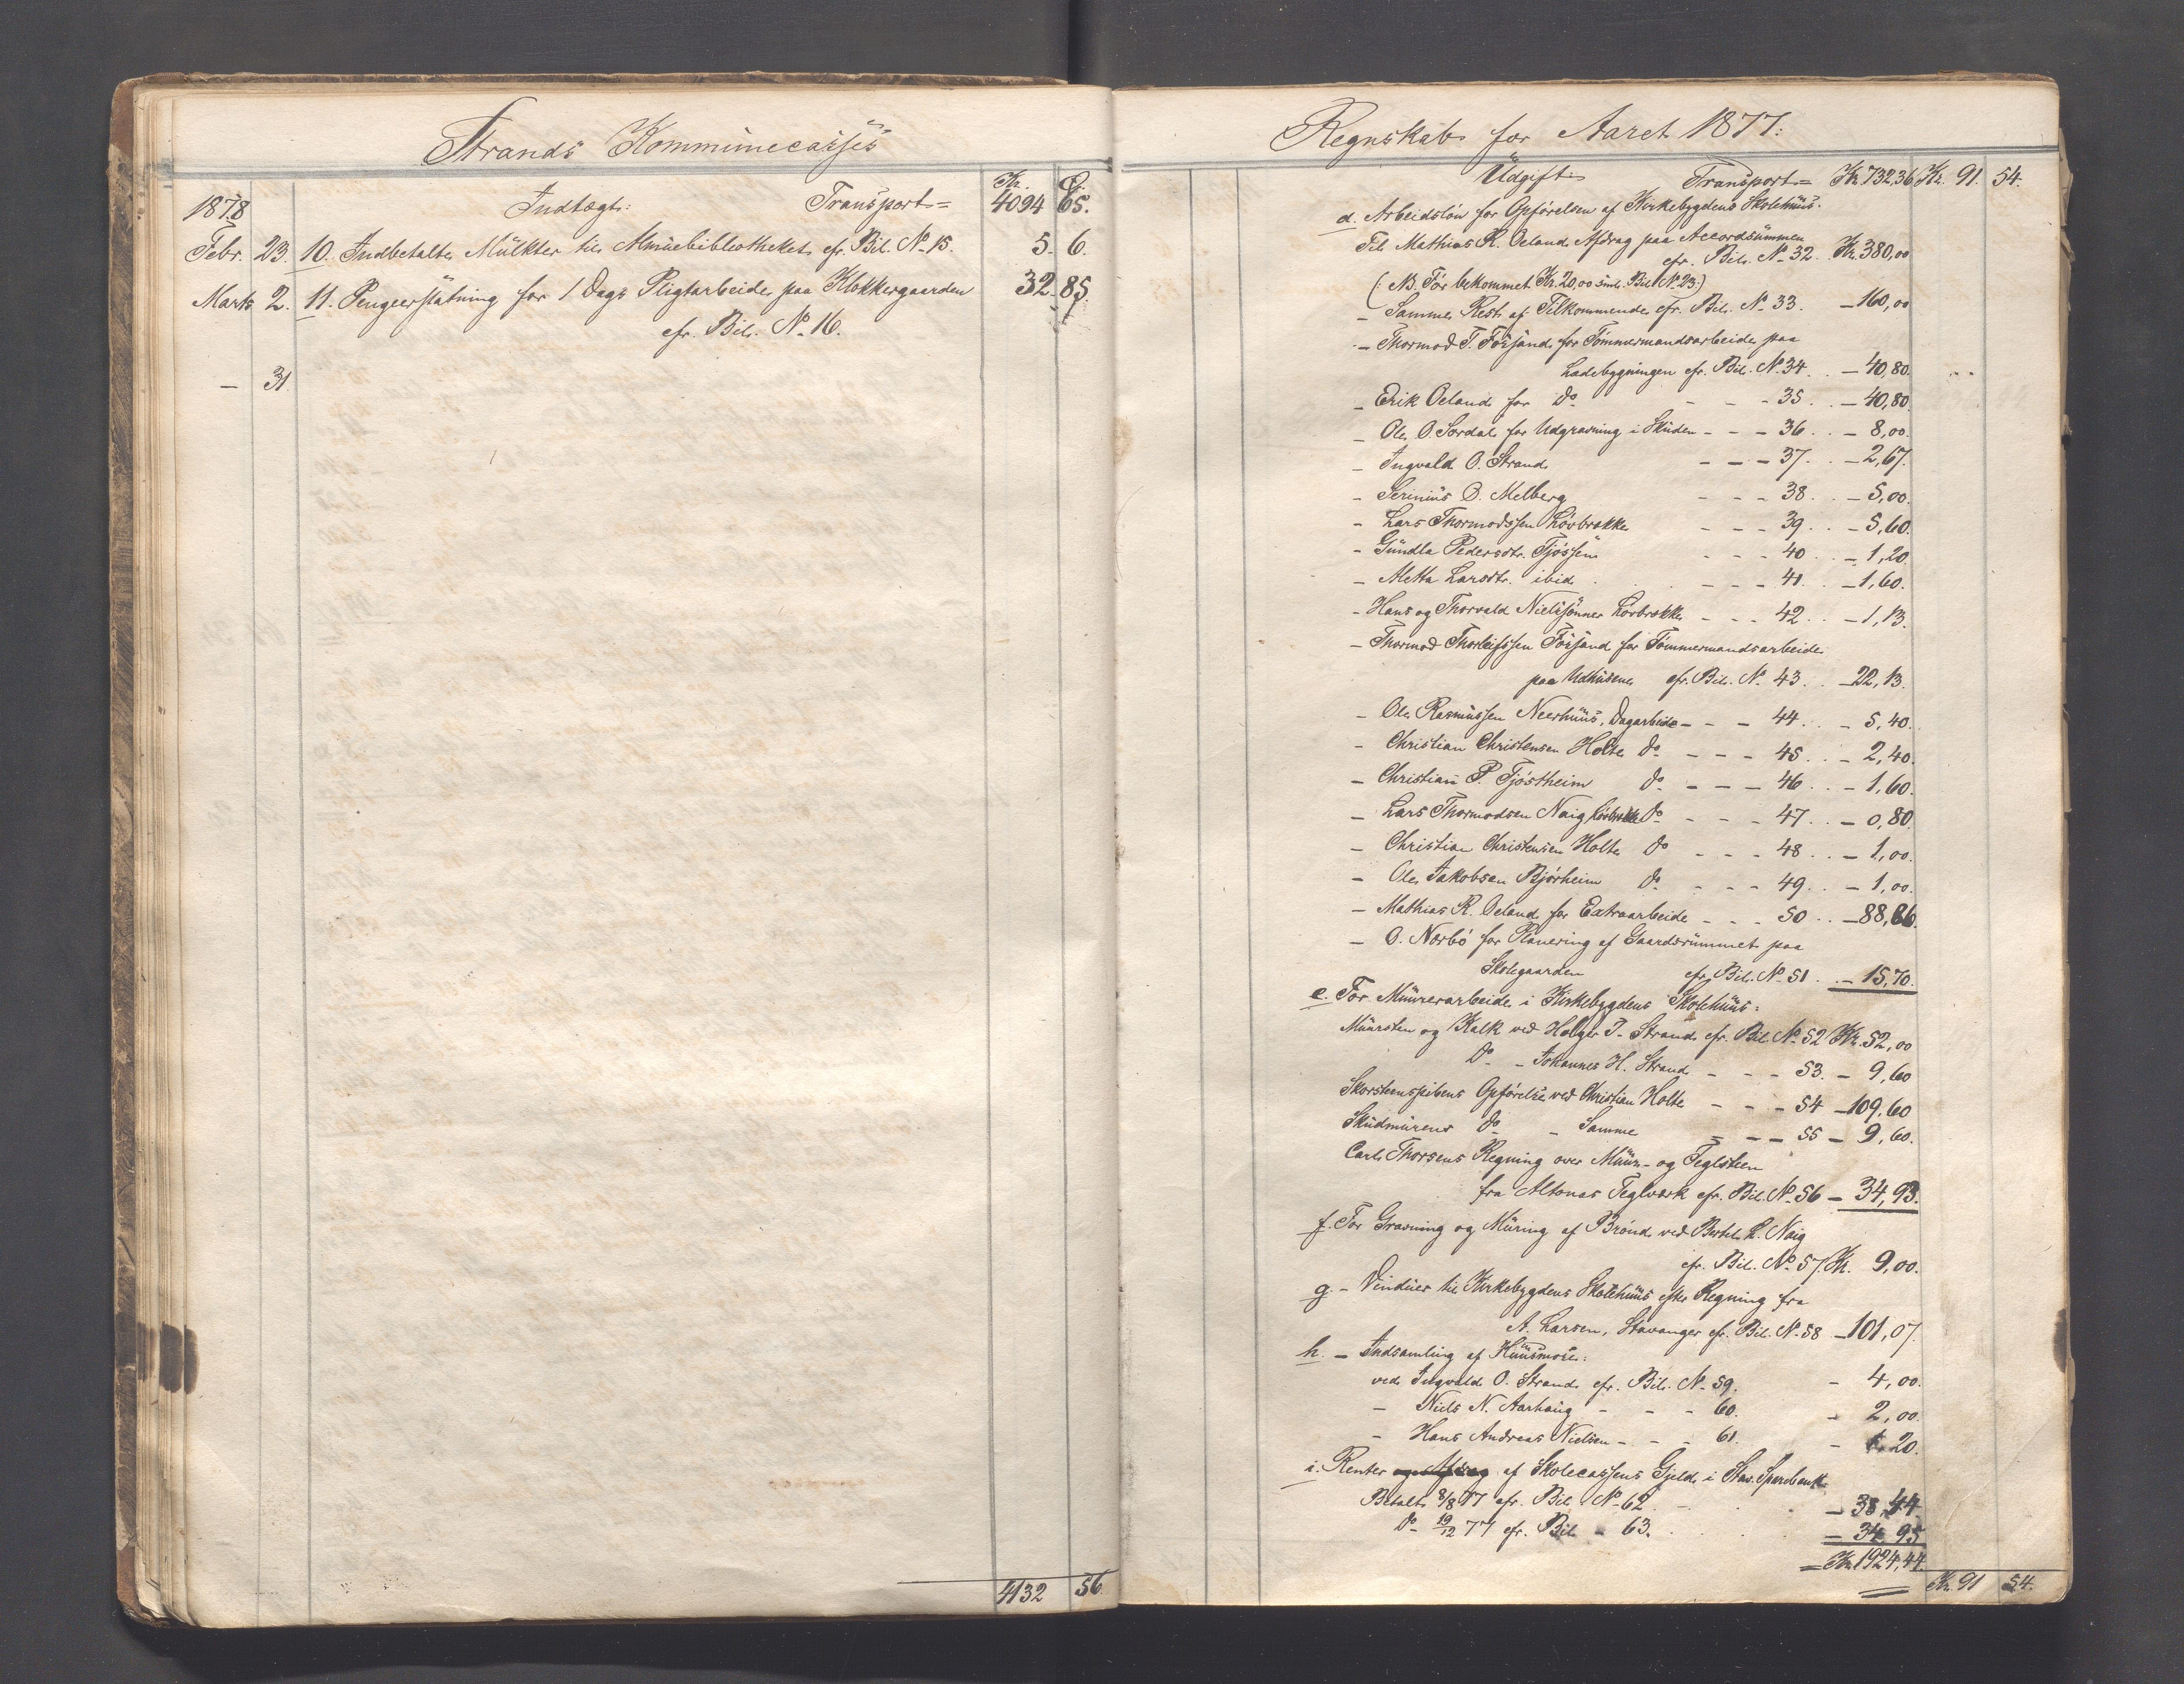 Strands Kommunecasses
Kr. Ø.
1878 Indtægt: Transport= 4094 65.
Febr. 23. 10. Indbetalte Mülkter til Almuebibliotheket cfr. Bil. No 15. 5. 6.
Marts 2. 11. Pengeerstatning for 1 Dags Pligtarbeide paa Klokkergaarden 32. 85.
cfr. Bil. No 16.
— 31.
4132 56.
Regnskab for Aaret 1877:
Udgift: Transport= Kr. 732,36 Kr. 91. 54.
d. Arbeidsløn for Opførelsen af Kirkebygdens Skolehuus.
Til Mathias R. Oeland Afdrag paa Accordsummen
cfr. Bil. No 32. Kr. 380,00
(: NB. Før bekommet Kr. 20,00 Bil. No 23:)
— Samme Rest af Tilkommende cfr. Bil. No 33. — 160,00
— Thormod T. Fossand for Tømmermandsarbeide paa
Ladebygningen cfr. Bil. No 34 . . — 40,80.
— Erik Oeland for Do - - - 35 . . — 40,80.
— Ole O. Sørdal for Udgravning i Skuden - - - 36 . . — 8,00.
— Ingvald O. Strand - - - 37 . . — 2,67.
— Serinius B. Melberg - - - 38 . . — 5,00.
— Lars Thormodssen Løvbrække - - - 39 . . — 5,60.
— Gundla Pedersdtr. Tjøssem - - - 40 . . — 1,20.
— Metta Larsdtr. ibid. - - - 41 . . — 1,60.
— Hans og Thorvald Nielssønner Løvbrække - - - 42 . . — 1,13.
— Thormod Thorleifssen Fossand for Tømmermandsarbeide
paa Udhusene cfr. Bil. No 43 . . — 22,13.
— Ole Rasmussen Neerhuus, Dagarbeide - - - 44 . . — 5,40.
— Christian Christensen Holte Do - - - 45 . . — 2,40.
— Christian P. Tjøstheim Do - - - 46 . . — 1,60.
— Lars Thormodsen Naig Løvbrække Do - - - 47 . . — 0,80.
— Christian Christensen Holte Do - - - 48 . . — 1,00.
— Ole Jakobsen Bjørheim Do - - - 49 . . — 1,00.
— Mathias R. Oeland for Extraarbeide - - - 50 . . — 88,66.
— O. Nørbø for Planering af Gaardsrummet paa
Skolegaarden cfr. Bil. No 51 . . — 15,70.
e. For Muurerarbeide i Kirkebygdens Skolehuus:
Muursten og Kalk ved Holger T. Strand cfr. Bil. No 52 Kr. 52,00
Do — Johannes H. Strand - - - 53. — 9,60
Skorsteenspibens Opførelse ved Christian Holte - - - 54 — 109,60
Skudmurens Do — Samme - - - 55 — 9,60.
Carl Thorsens Regning over Muur- og Teglsteen
fra Altonas Teglværk cfr. Bil. No 56 — 34,93.
f. For Gravning og Muring af Brønd ved Bertel L. Naig
cfr. Bil. No 57. Kr. 9,00.
g. — Vinduer til Kirkebygdens Skolehuus efter Regning fra
A. Larsen, Stavanger cfr. Bil. No 58 — 101,07.
h. — Indsamling af Huusmose:
ved Ingvald O. Strand cfr. Bil. No 59. — 4,00.
— Niels N. Aarhaug - - - 60. — 2,00.
— Hans Andreas Nielsen - - - 61. — 20.
i. Renter og Afdrag af Skolecassens Gjeld i Stav. Sparebank
Betalt 8/8 77 cfr. Bil. No 62. — 38,44.
Do 19/12 77 cfr. Bil. - 63. — 34,95
= Kr. 1924,44.
Kr. 91 54.